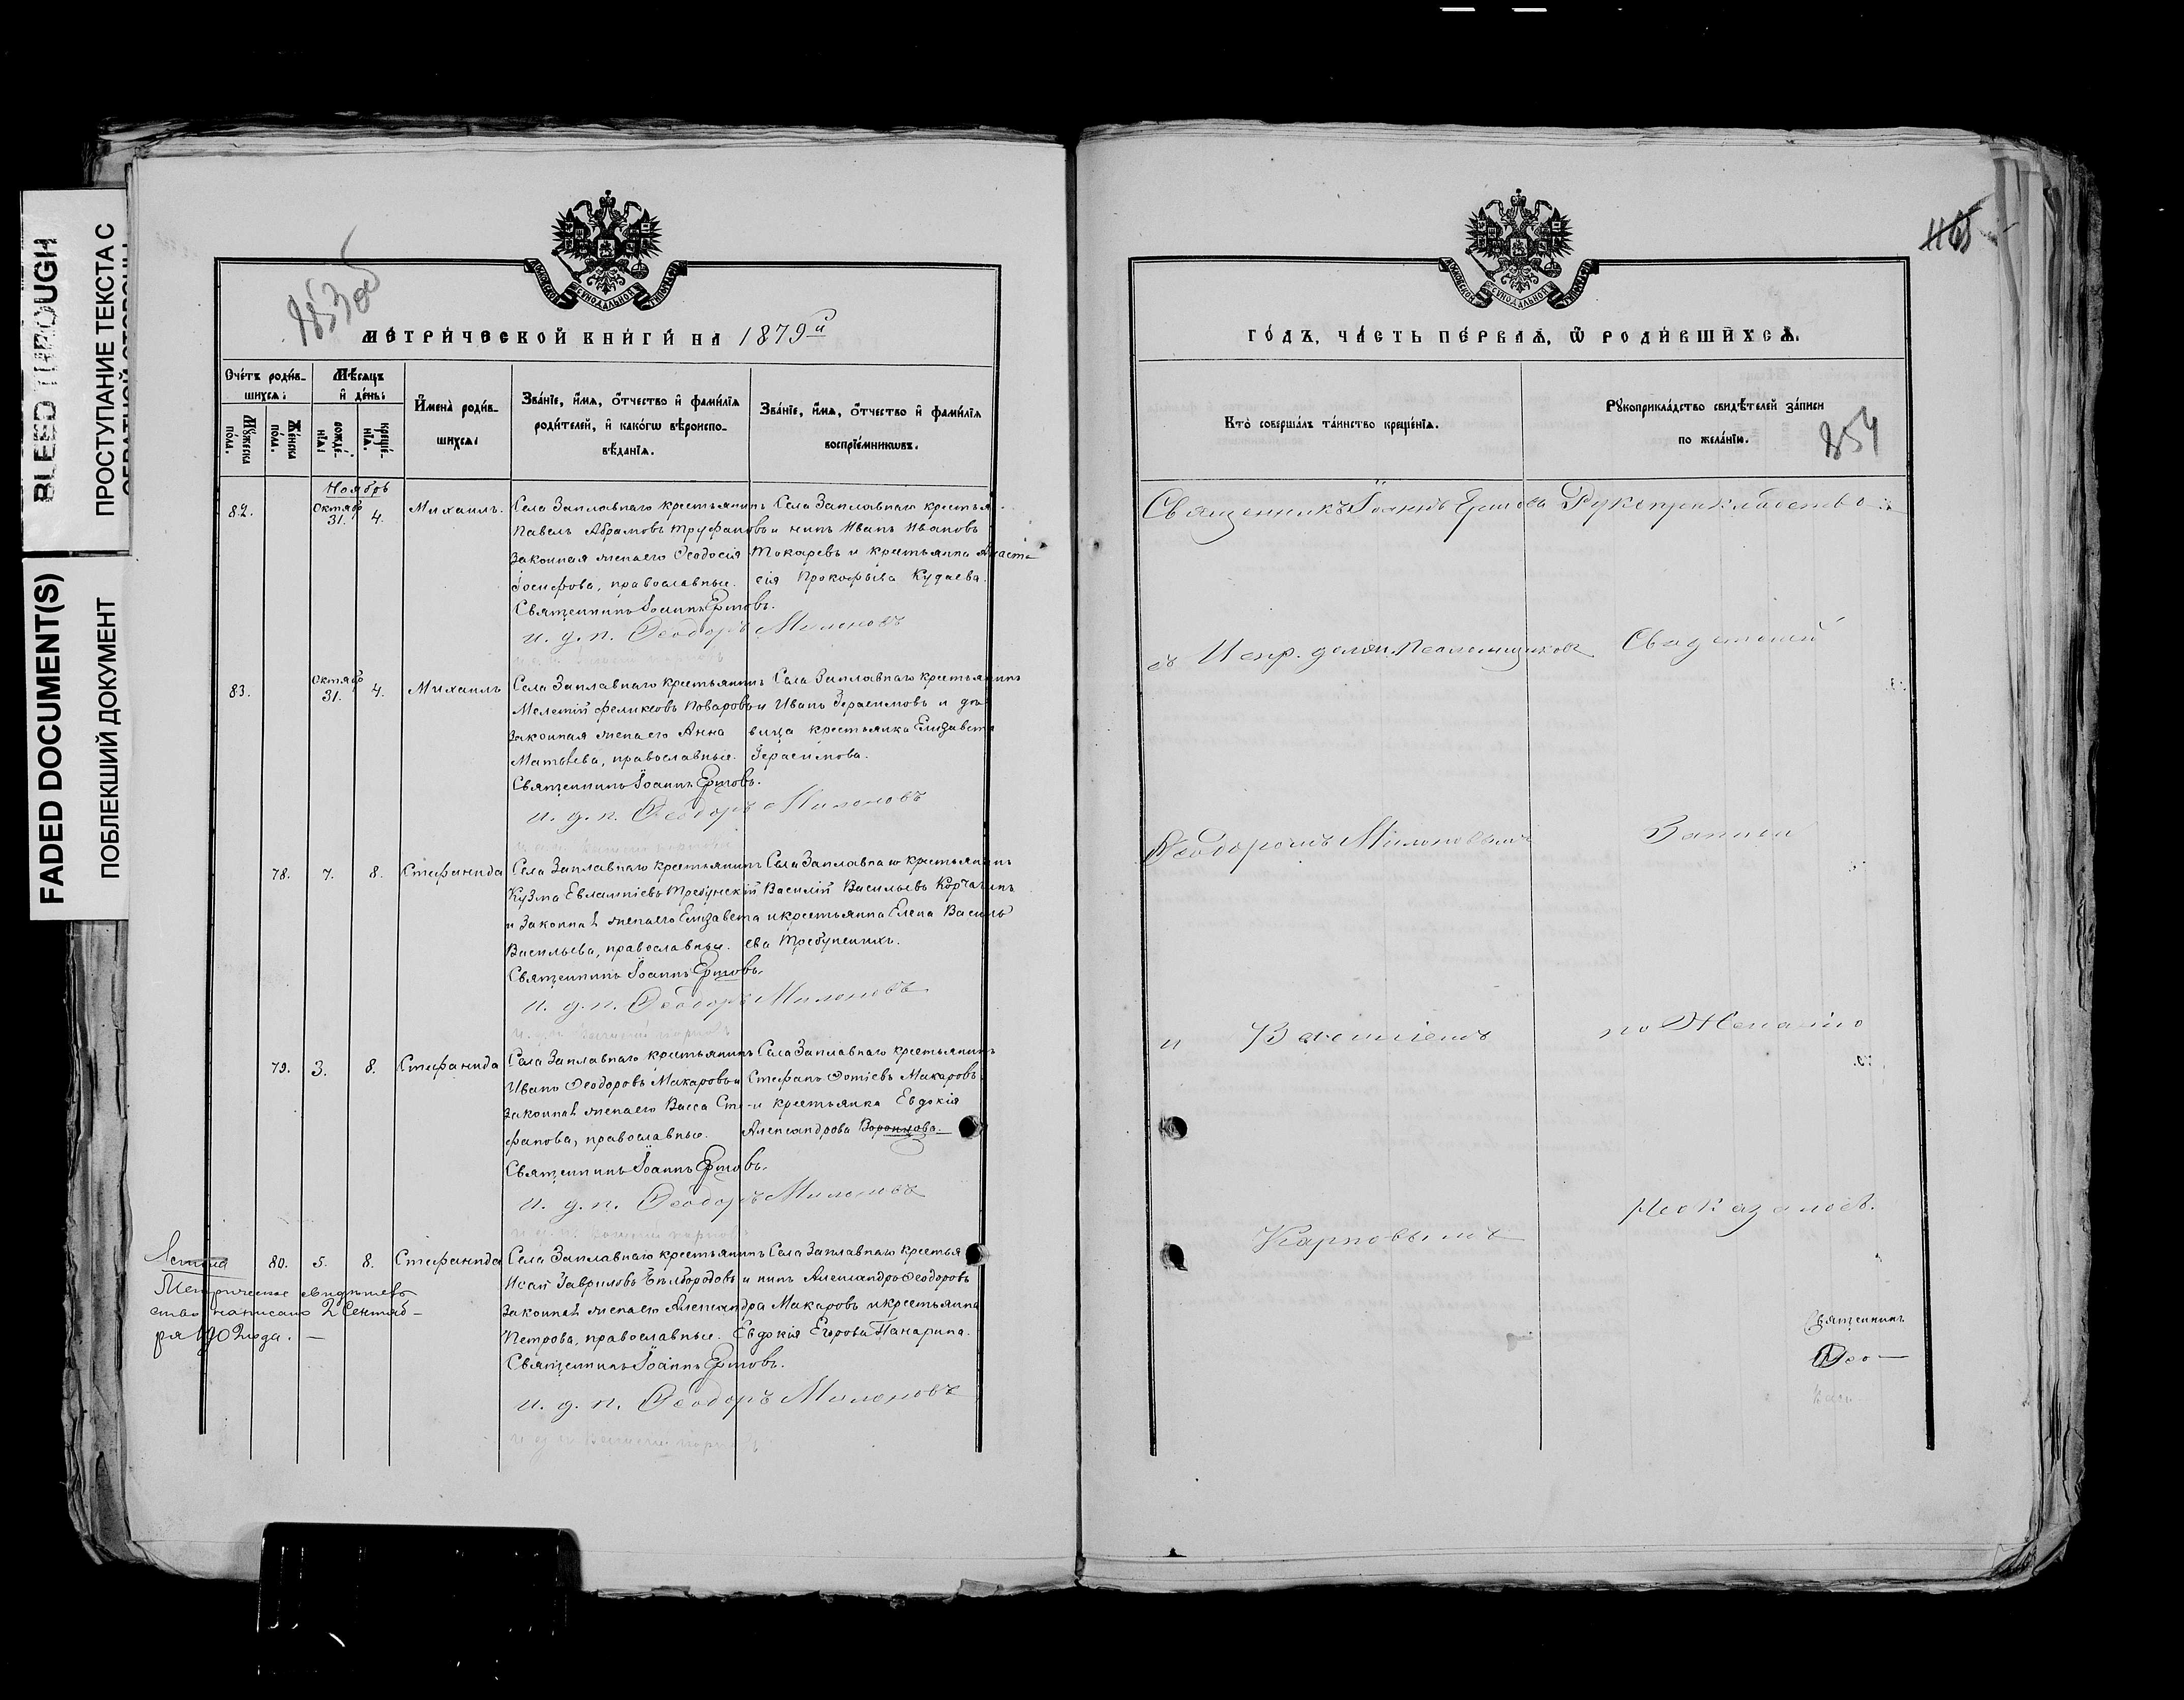 BLEED THROUGH
ПРОСТУПАНИЕ ТЕКСТА С
FADED DOCUMENT(S)
ПОБЛЕКШИЙ ДОКУМЕНТ
МЕТРИЧЕСКОЙ КНИГИ НА 1879й
Счетъ родив-
шихся:
Мужеска
пола.
Женска
пола.
Мѣсяцъ
и день:
рожде-
нія:
креще-
нія.
Имена родив-
шихся:
Званіе, имя, отчество и фамилія
родителей, и какогѡ вѣроиспо-
вѣданія.
Званіе, имя, отчество и фамилія
воспріемникѡвъ.
Ноябрь
82. Октяб 31. 4. Михаилъ.
Села Заплавнаго крестьянинъ
Павелъ Абрамовъ Труфановъ и
законная жена его Ѳеодосія
Іосифова, православные.
Священникъ Іоаннъ Ершовъ.
и. д. п. Ѳеодоръ Милоновъ
Села Заплавнаго крестья-
нинъ Иванъ Ивановъ
Токаревъ и крестьянка Анаста-
сія Прокофьева Кудаева.
83. Октяб 31. 4. Михаилъ
Села Заплавнаго крестьянинъ
Мелетій Феликсовъ Поваровъ и
законная жена его Анна
Матвѣева, православные.
Священникъ Іоаннъ Ершовъ.
и. д. п. Ѳеодоръ Милоновъ
Села Заплавнаго крестьянинъ
Иванъ Герасимовъ и дѣ-
вица крестьянка Елизавета
Герасимова.
78. 7. 8. Стефанида
Села Заплавнаго крестьянинъ
Кузма Евлампіевъ Требунскій
и законная жена его Елизавета
Васильева, православные.
Священникъ Іоаннъ Ершовъ.
и. д. п. Ѳеодоръ Милоновъ
Села Заплавнаго крестьянинъ
Василій Васильевъ Корчагинъ
и крестьянка Елена Василь
ева Требунскихъ.
79. 3. 8. Стефанида
Села Заплавнаго крестьянинъ
Иванъ Ѳеодоровъ Макаровъ и
законная жена его Васса Сте-
фанова, православные.
Священникъ Іоаннъ Ершовъ.
и. д. п. Ѳеодоръ Милоновъ
Села Заплавнаго крестьянинъ
Стефанъ Фотіевъ Макаровъ
и крестьянка Евдокія
Александрова Воронцова.
Метрическое свидѣтель
ство написано 2 Сентяб-
ря 1902 года.
80. 5. 8. Стефанида
Села Заплавнаго крестьянинъ
Исай Гавриловъ Бѣлбородовъ и
законная жена его Александра
Петрова, православные.
Священникъ Іоаннъ Ершовъ.
и. д. п. Ѳеодоръ Милоновъ
Села Заплавнаго крестья
нинъ Александръ Ѳеодоровъ
Макаровъ и крестьянка
Евдокія Егорова Панарина.
ГОДЪ, ЧАСТЬ ПЕРВАЯ, Ѿ РОДИВШИХСЯ.
854
Кто совершалъ таинство крещенія.
Рукоприкладство свидѣтелей записи
по желанію.
Священникъ Іоаннъ Ершовъ Рукоприкладство
съ Испр. должн. Псаломщиковъ Свидѣтелей
Ѳеодоромъ Милоновымъ Записи
и Василіемъ по Желанію
Карповымъ Не оказалось.
Священникъ
Ѳео-